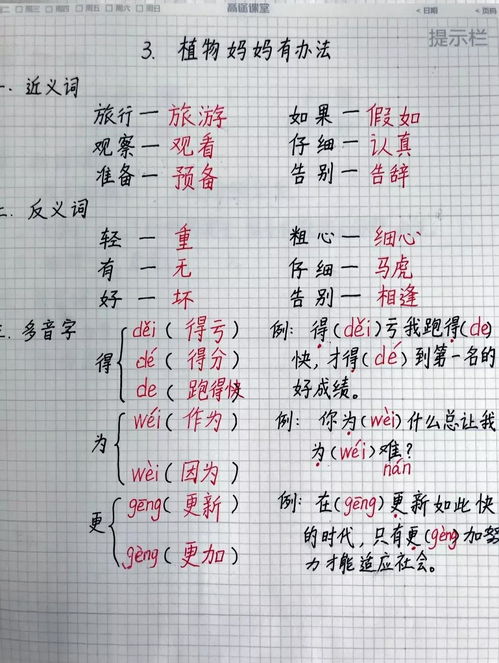 二 □周三 □周四 □周五 □周六 □周日 高途课堂 <日期 <页码
提示栏
3. 植物妈妈有办法
一. 近义词
旅行一旅游 如果一假如
观察一观看 仔细一认真
准备一预备 告别一告辞
二. 反义词
轻一重 粗心一细心
有一无 仔细一马虎
好一坏 告别一相逢
三. 多音字
得 děi(得亏) dé(得分) de(跑得快)
例: 得(děi)亏我跑得(de)
快,才得(dé)到第一名的
好成绩。
为 wéi(作为) wèi(因为)
例: 你为(wèi)什么总让我
为(wéi)难?
nán
更 gēng(更新) gèng(更加)
例: 在(gēng)更新如此快
的时代,只有更(gèng)加努
力才能适应社会。